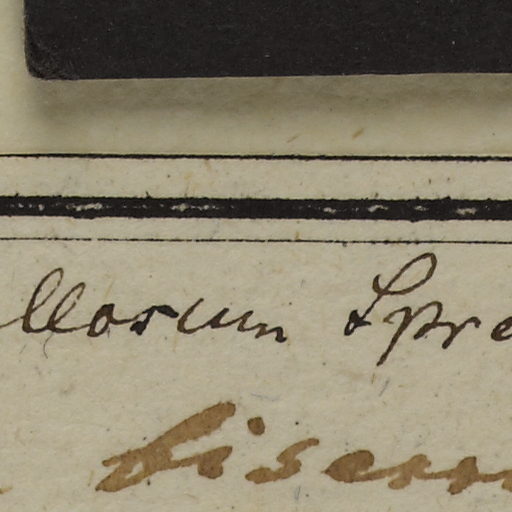 llorum Spre
biserr